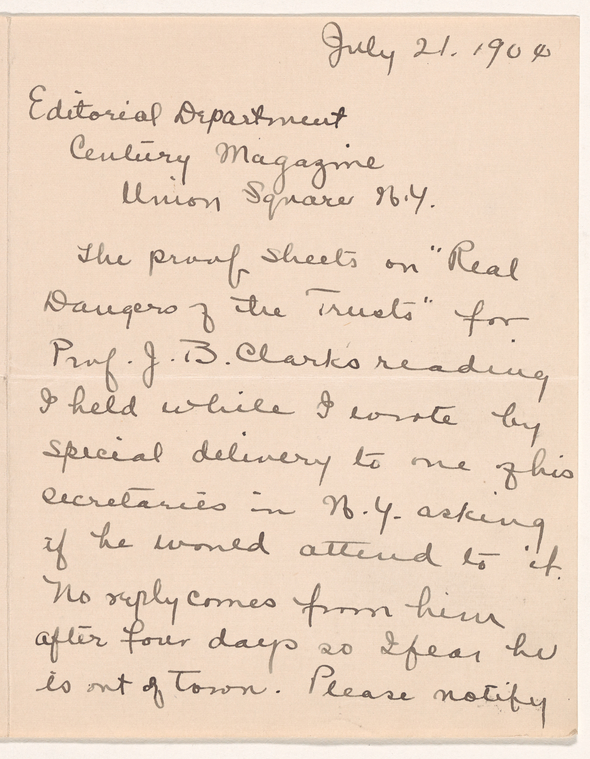 July 21. 1904
Editorial Department
Century Magazine
Union Square N.Y.
The proof sheets on "Real
Dangers of the Trusts" for
Prof. J. B. Clark's reading
I held while I wrote by
special delivery to one of his
secretaries in N.Y. asking
if he would attend to it.
No reply comes from him
after four days so I fear he
is out of town. Please notify